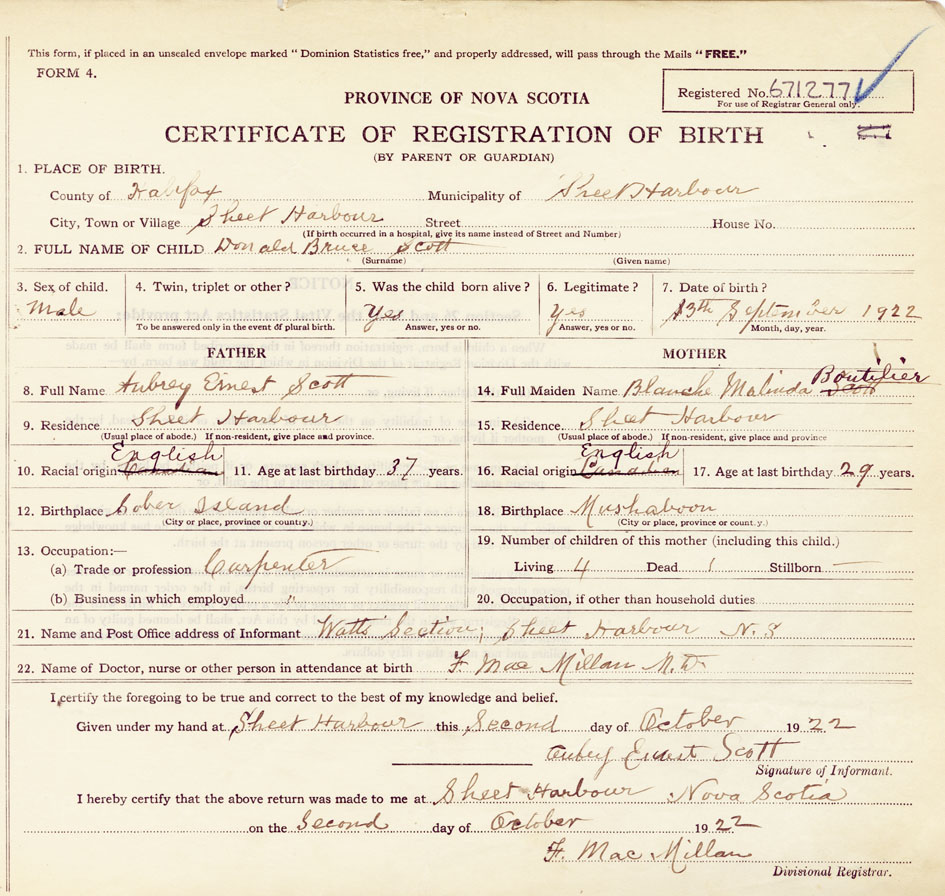 This form, if placed in an unsealed envelope marked "Dominion Statistics free," and properly addressed, will pass through the Mails "FREE."
FORM 4.
Registered No. 671277
For use of Registrar General only.
PROVINCE OF NOVA SCOTIA
CERTIFICATE OF REGISTRATION OF BIRTH
(BY PARENT OR GUARDIAN)
1. PLACE OF BIRTH.
County of Halifax Municipality of Sheet Harbour
City, Town or Village Sheet Harbour Street House No.
(If birth occurred in a hospital, give its name instead of Street and Number)
2. FULL NAME OF CHILD Donald Bruce Scott
(Surname) (Given name)
3. Sex of child. 4. Twin, triplet or other? 5. Was the child born alive? 6. Legitimate? 7. Date of birth?
Male Yes Yes 13th September 1922
To be answered only in the event of plural birth. Answer, yes or no. Answer, yes or no. Month, day, year.
FATHER MOTHER
8. Full Name Aubrey Ernest Scott 14. Full Maiden Name Blanche Malinda Scott Boutilier
9. Residence Sheet Harbour 15. Residence. Sheet Harbour
(Usual place of abode.) If non-resident, give place and province. (Usual place of abode.) If non-resident, give place and province
English English
10. Racial origin Canadian 11. Age at last birthday 37 years. 16. Racial origin Canadian 17. Age at last birthday 29 years.
12. Birthplace Sober Island 18. Birthplace Mushaboon
(City or place, province or country.) (City or place, province or country.)
13. Occupation:— 19. Number of children of this mother (including this child.)
(a) Trade or profession Carpenter Living 4 Dead 1 Stillborn —
(b) Business in which employed " 20. Occupation, if other than household duties
21. Name and Post Office address of Informant Watts Section, Sheet Harbour N.S
22. Name of Doctor, nurse or other person in attendance at birth F. Mac Millan M.D.
I certify the foregoing to be true and correct to the best of my knowledge and belief.
Given under my hand at Sheet Harbour this Second day of October 1922
Aubrey Ernest Scott
Signature of Informant.
I hereby certify that the above return was made to me at Sheet Harbour Nova Scotia
on the Second day of October 1922
F. Mac Millan
Divisional Registrar.